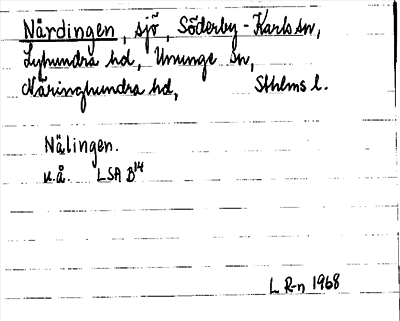 Närdingen, sjö, Söderby-Karls sn,
Lyhundra hd, Ununge sn,
Närdinghundra hd, Sthlms l.
Nälingen.
u.å. LSA B¹⁴
L R-n 1968